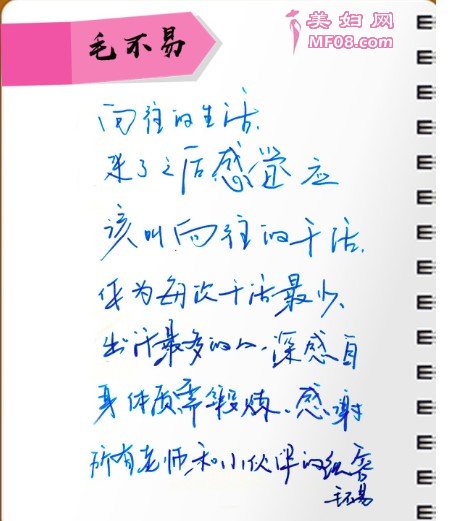 毛不易
美妇网
MF08.com
向往的生活,
来了之后感觉应
该叫向往的干活,
作为每次干活最少、
出汗最多的人,深感自
身体质需锻炼、感谢
所有老师和小伙伴的照看
毛不易